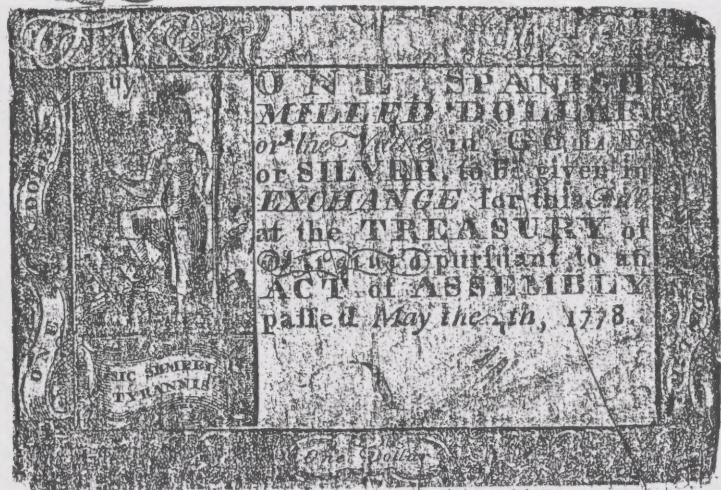 ONE SPANISH
MILLED DOLLAR
or the Value in GOLD
or SILVER, to be given in
EXCHANGE for this Bill
at the TREASURY of
purſuant to an
ACT of ASSEMBLY
paſſed May the 4th, 1778.
DOLLAR
ONE
SIC SEMPER
TYRANNIS
One Dollar